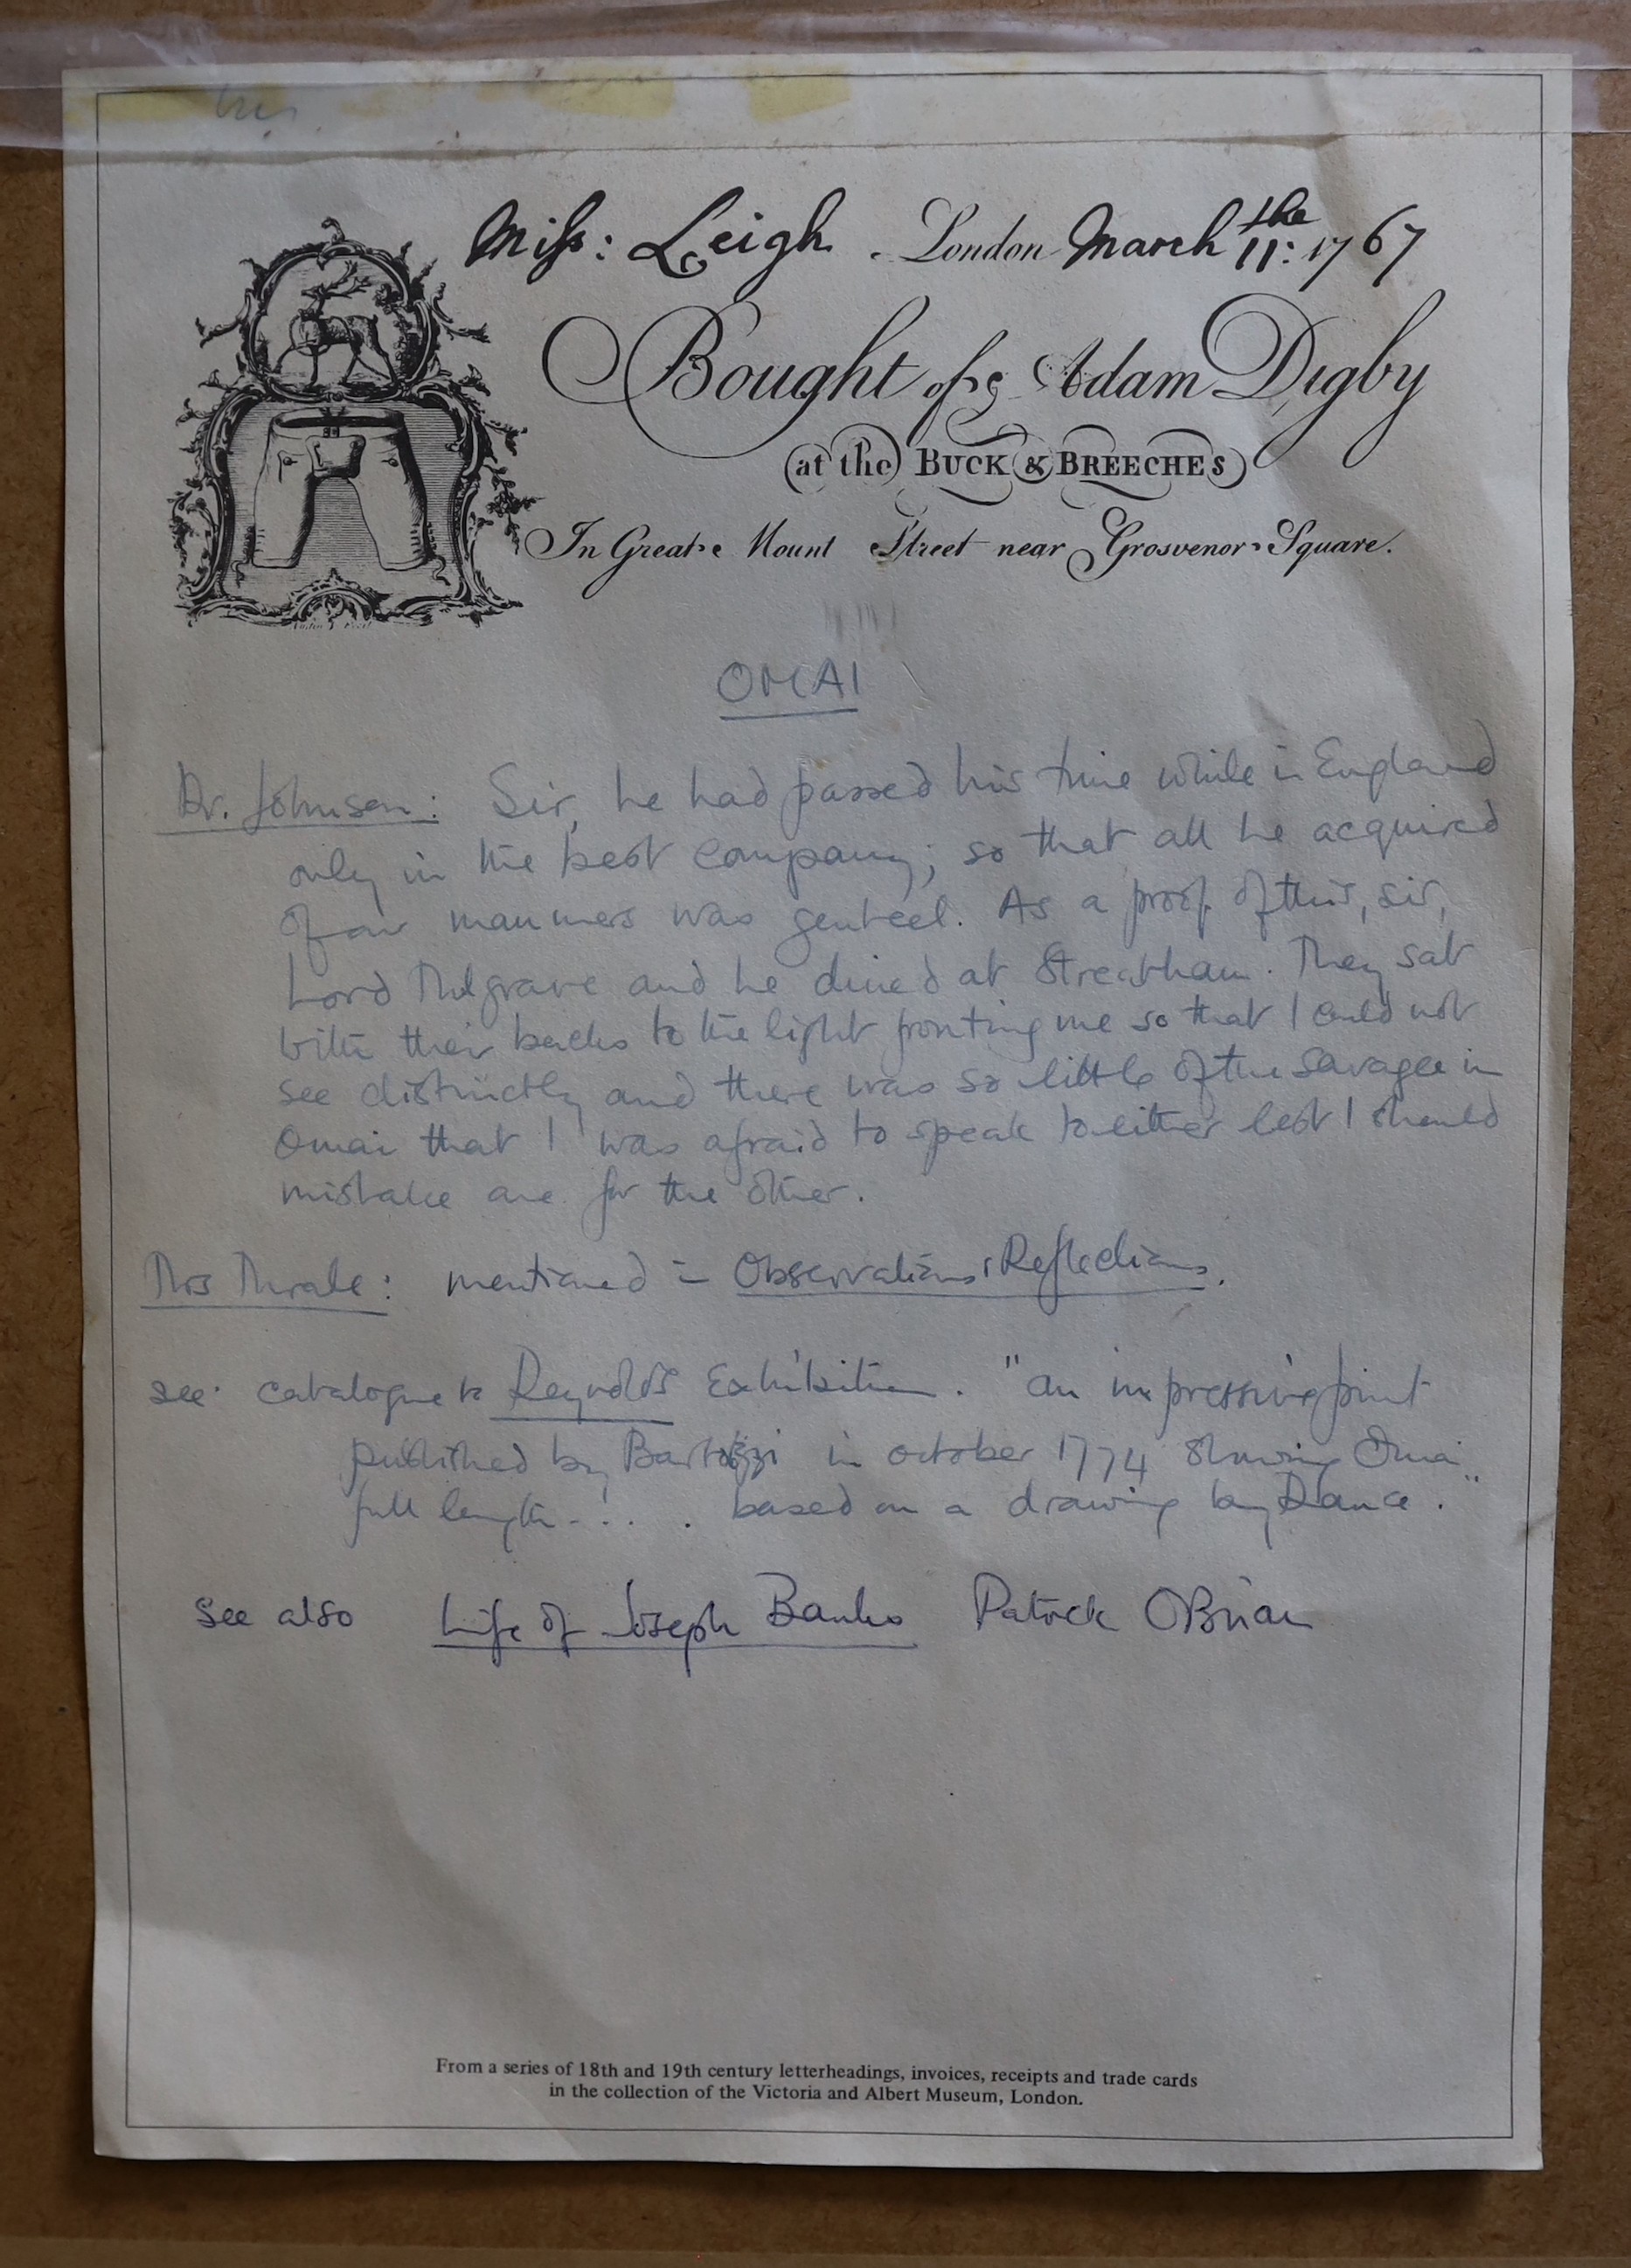 Miſs: Leigh . London March 11:the 1767
Bought of Adam Digby
(at the) BUCK & BREECHES
In Great Mount Street near Grosvenor Square.
OMAI
Dr. Johnson: Sir, he had passed his time while in England
only in the best company; so that all he acquired
of our manners was genteel. As a proof of this, sir,
Lord Mulgrave and he dined at Streatham. They sat
with their backs to the light fronting me so that I could not
see distinctly and there was so little of the savage in
Omai that I was afraid to speak to either lest I should
mistake one for the other.
Mrs Thrale: mentioned in Observations & Reflections.
see catalogue to Reynolds Exhibition. "an impressive print
published by Bartolozzi in October 1774 showing Omai
full length . . . . based on a drawing by Dance."
See also Life of Joseph Banks Patrick OBrian
From a series of 18th and 19th century letterheadings, invoices, receipts and trade cards
in the collection of the Victoria and Albert Museum, London.